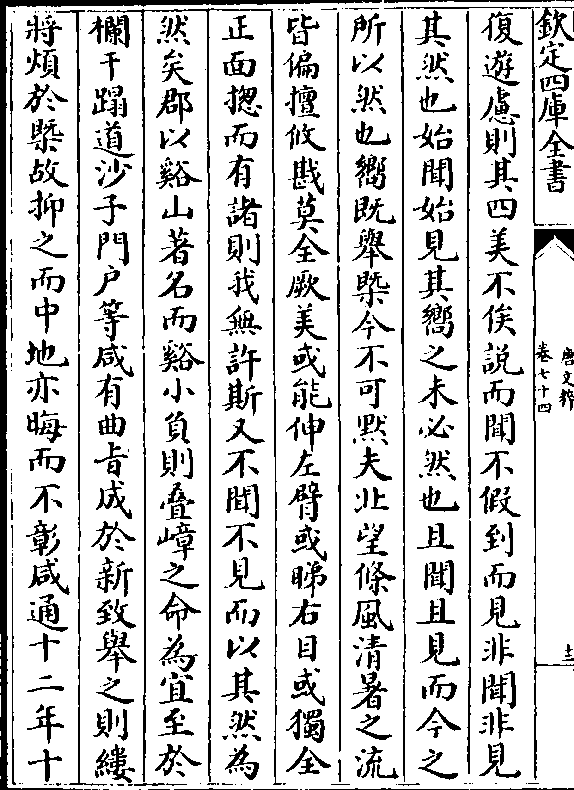 欽定四庫全書
唐文粹
卷七十四
十二
復遊慮則其四美不俟說而聞不假到而見非聞非見
其然也始聞始見其嚮之未必然也且聞且見而今之
所以然也嚮既舉槩今不可黙夫北望條風清暑之流
皆偏擅攸戡莫全厥美或能伸左臂或睇右目或獨全
正面揔而有諸則我無許斯又不聞不見而以其然為
然矣郡以谿山著名而谿小負則疊嶂之命為宜至於
欄干蹋道沙子門戶等咸有曲旨成於新致舉之則縷
將煩於槩故抑之而中地亦晦而不彰咸通十二年十